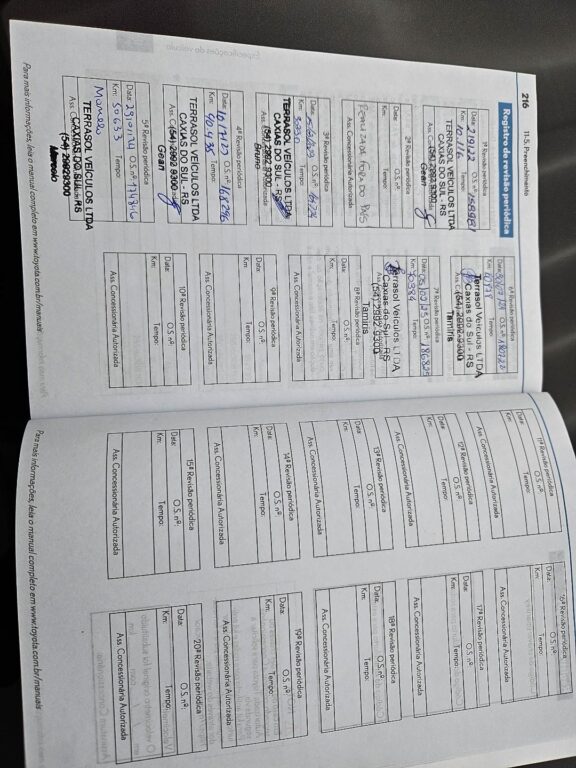 216
11-5. Preenchimento
Registro de revisão periódica
1ª Revisão periódica
Data: 21/9/22 O.S. nº:
Km: 10.116 Tempo:
TERRASOL VEÍCULOS LTDA
CAXIAS DO SUL - RS
(54) 2992 9300
Gean
Ass. Concessionária Autorizada
2ª Revisão periódica
Data: O.S. nº:
Km: Tempo:
REALIZADA FORA DO PAÍS
Ass. Concessionária Autorizada
3ª Revisão periódica
Data: O.S. nº:
Km: Tempo:
TERRASOL VEÍCULOS LTDA
CAXIAS DO SUL - RS
(54) 2992 9300
Bruno
4ª Revisão periódica
Data: O.S. nº: 168296
Km: 40.435 Tempo:
TERRASOL VEÍCULOS LTDA
CAXIAS DO SUL - RS
(54) 2992 9300
Gean
5ª Revisão periódica
Data: O.S. nº: 174846
Km: 50633 Tempo:
TERRASOL VEÍCULOS LTDA
CAXIAS DO SUL - RS
6ª Revisão periódica
Data: O.S. nº:
Km: Tempo:
Terrasol Veículos LTDA
Caxias do Sul - RS
(54) 2992-9300
Tamiris
7ª Revisão periódica
Data: O.S. nº: 186825
Km: Tempo:
Terrasol Veículos LTDA
Caxias do Sul - RS
(54) 2992-9300
Tamiris
8ª Revisão periódica
Data: O.S. nº:
Km: Tempo:
Ass. Concessionária Autorizada
9ª Revisão periódica
Data: O.S. nº:
Km: Tempo:
Ass. Concessionária Autorizada
10ª Revisão periódica
Data: O.S. nº:
Km: Tempo:
Ass. Concessionária Autorizada
Para mais informações, leia o manual completo em www.toyota.com.br/manuais
11ª Revisão periódica
Data: O.S. nº:
Km: Tempo:
Ass. Concessionária Autorizada
12ª Revisão periódica
Data: O.S. nº:
Km: Tempo:
Ass. Concessionária Autorizada
13ª Revisão periódica
Data: O.S. nº:
Km: Tempo:
Ass. Concessionária Autorizada
14ª Revisão periódica
Data: O.S. nº:
Km: Tempo:
Ass. Concessionária Autorizada
15ª Revisão periódica
Data: O.S. nº:
Km: Tempo:
Ass. Concessionária Autorizada
16ª Revisão periódica
Data: O.S. nº:
Km: Tempo:
Ass. Concessionária Autorizada
17ª Revisão periódica
Data: O.S. nº:
Km: Tempo:
Ass. Concessionária Autorizada
18ª Revisão periódica
Data: O.S. nº:
Km: Tempo:
Ass. Concessionária Autorizada
19ª Revisão periódica
Data: O.S. nº:
Km: Tempo:
Ass. Concessionária Autorizada
20ª Revisão periódica
Data: O.S. nº:
Km: Tempo:
Ass. Concessionária Autorizada
Para mais informações, leia o manual completo em www.toyota.com.br/manuais